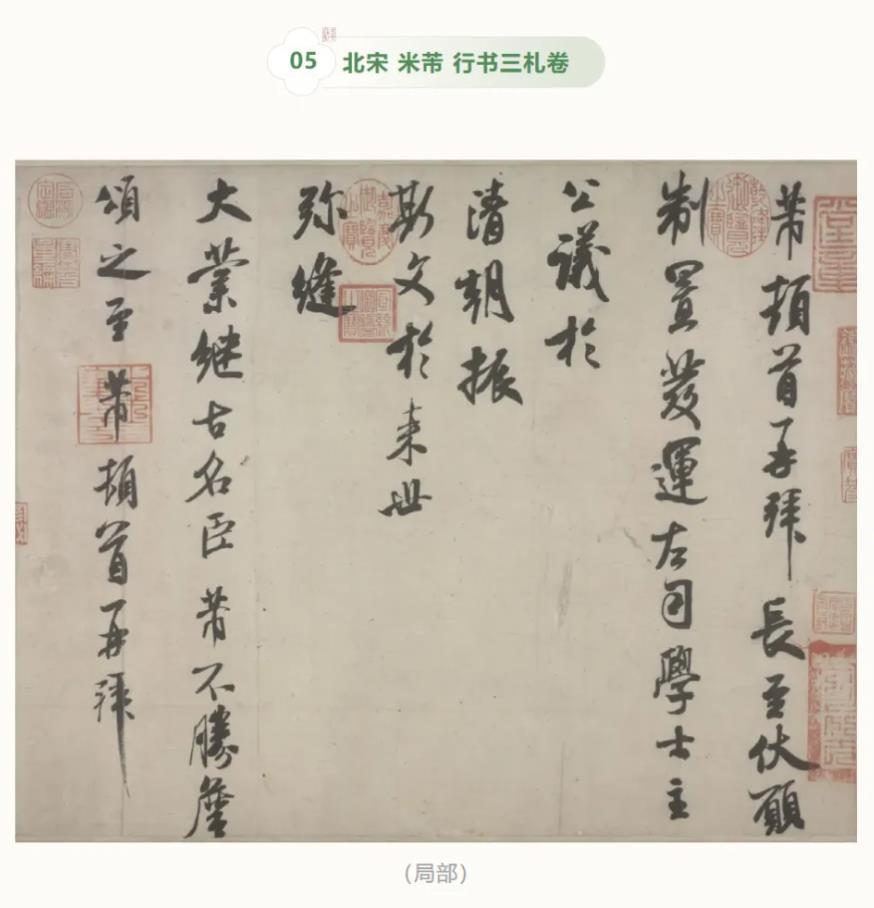 05
北宋 米芾 行书三札卷
芾頓首再拜長至伏願
制置發運左司學士主
公議於
清朝振
斯文於来世
弥縫
大業継古名臣芾不勝
頌之至芾頓首再拜
（局部）